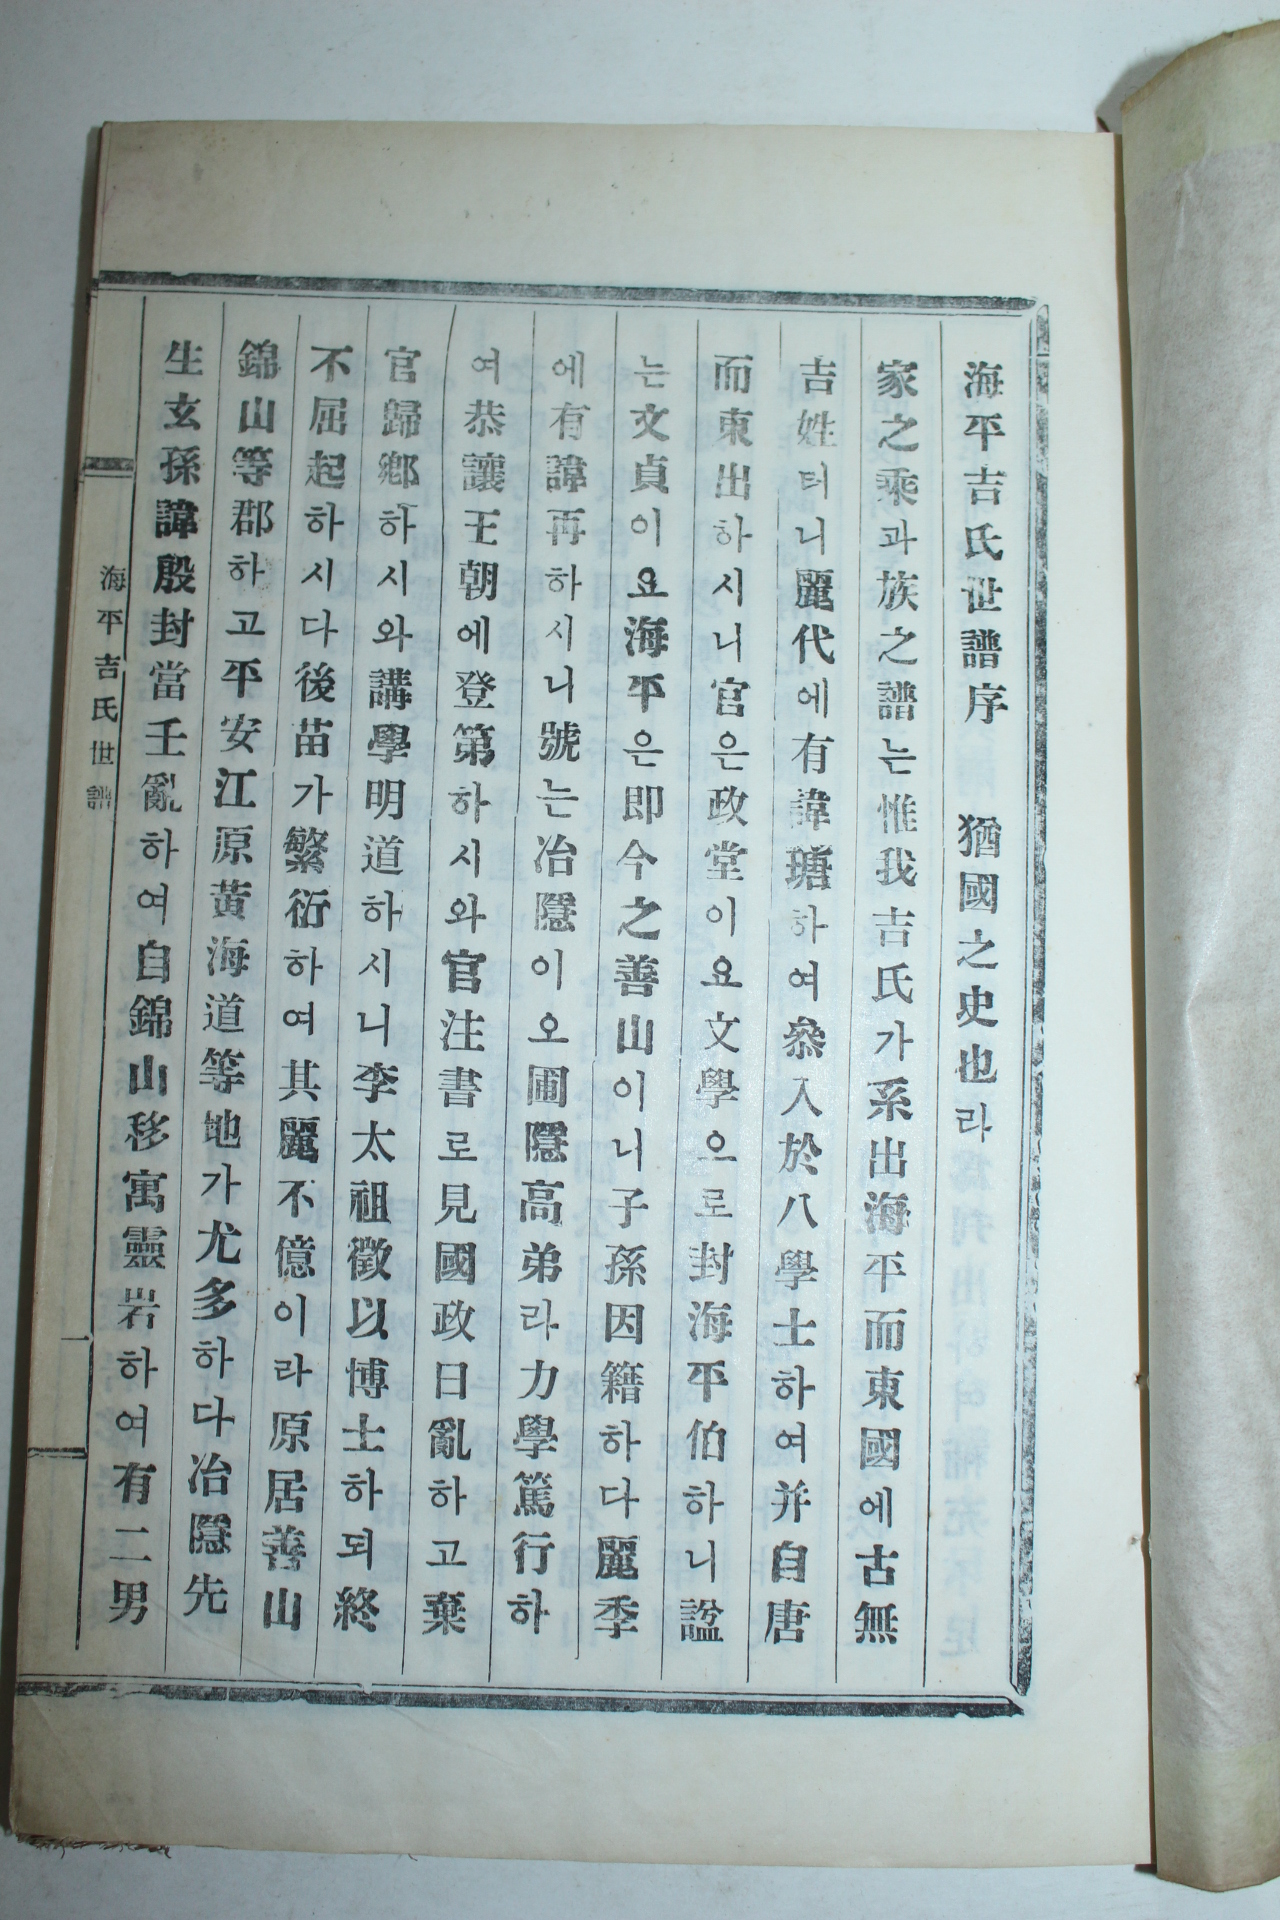 海平吉氏世譜序 猶國之史也라
家之乘과族之譜는惟我吉氏가系出海平而東國에古無
吉姓터니麗代에有諱瑭하여叅入於八學士하여并自唐
而東出하시니官은政堂이요文學으로封海平伯하니諡
는文貞이요海平은即今之善山이니子孫因籍하다麗季
에有諱再하시니號는冶隱이오圃隱高弟라力學篤行하
여恭讓王朝에登第하시와官注書로見國政日亂하고棄
官歸鄕하시와講學明道하시니李太祖徵以博士하되終
不屈起하시다後苗가繁衍하여其麗不億이라原居善山
錦山等郡하고平安江原黃海道等地가尤多하다冶隱先
生玄孫諱殷封當壬亂하여自錦山移寓靈岩하여有二男
海平吉氏世譜
一